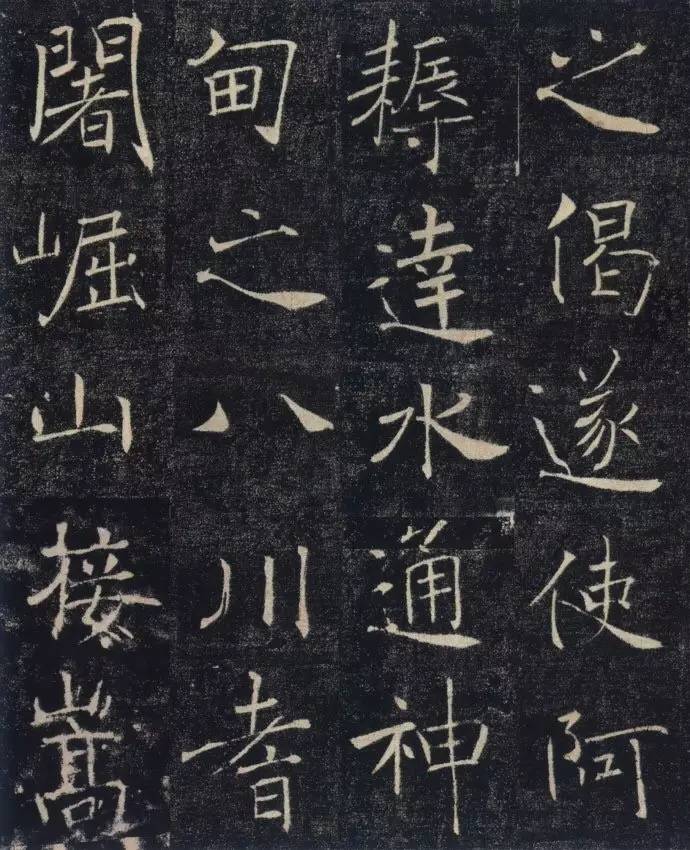 之偈遂使阿
耨達水通神
甸之八川耆
闍崛山接嵩